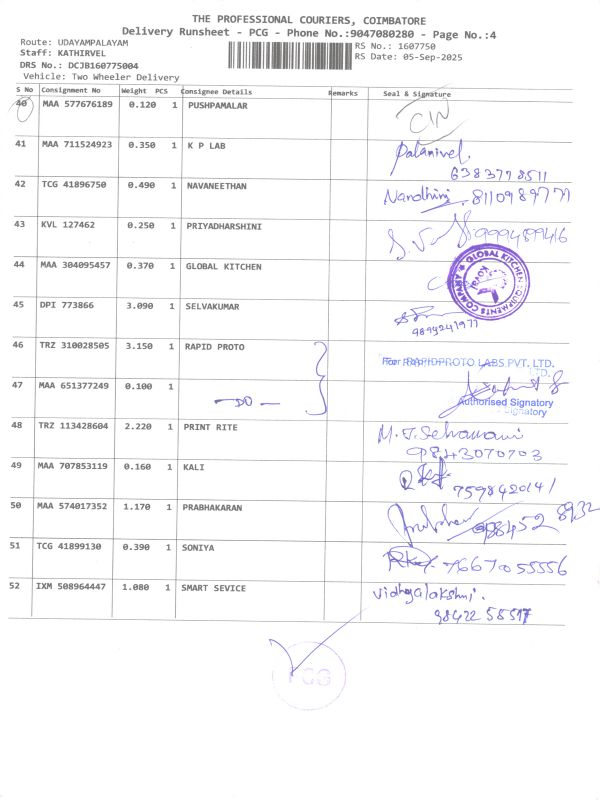 THE PROFESSIONAL COURIERS, COIMBATORE
Delivery Runsheet - PCG - Phone No.:9047080280 - Page No.:4
Route: UDAYAMPALAYAM RS No.: 1607750
Staff: KATHIRVEL RS Date: 05-Sep-2025
DRS No.: DCJB160775004
Vehicle: Two Wheeler Delivery
S No Consignment No Weight PCS Consignee Details Remarks Seal & Signature
40 MAA 577676189 0.120 1 PUSHPAMALAR
41 MAA 711524923 0.350 1 K P LAB Palanivel.
6383798511
42 TCG 41896750 0.490 1 NAVANEETHAN Nandhini. 8110989771
43 KVL 127462 0.250 1 PRIYADHARSHINI 9994899416
44 MAA 304095457 0.370 1 GLOBAL KITCHEN GLOBAL KITCHEN EQUIPMENTS COMPANY
45 DPI 773866 3.090 1 SELVAKUMAR
9894241977
46 TRZ 310028505 3.150 1 RAPID PROTO For RAPIDPROTO LABS PVT. LTD.
47 MAA 651377249 0.100 1 -DO-
Authorised Signatory
48 TRZ 113428604 2.220 1 PRINT RITE
9843070703
49 MAA 707853119 0.160 1 KALI
7598420141
50 MAA 574017352 1.170 1 PRABHAKARAN 98452 8932
51 TCG 41899130 0.390 1 SONIYA 7667055556
52 IXM 508964447 1.080 1 SMART SEVICE Vidhyalakshmi.
98422 58517
PCG